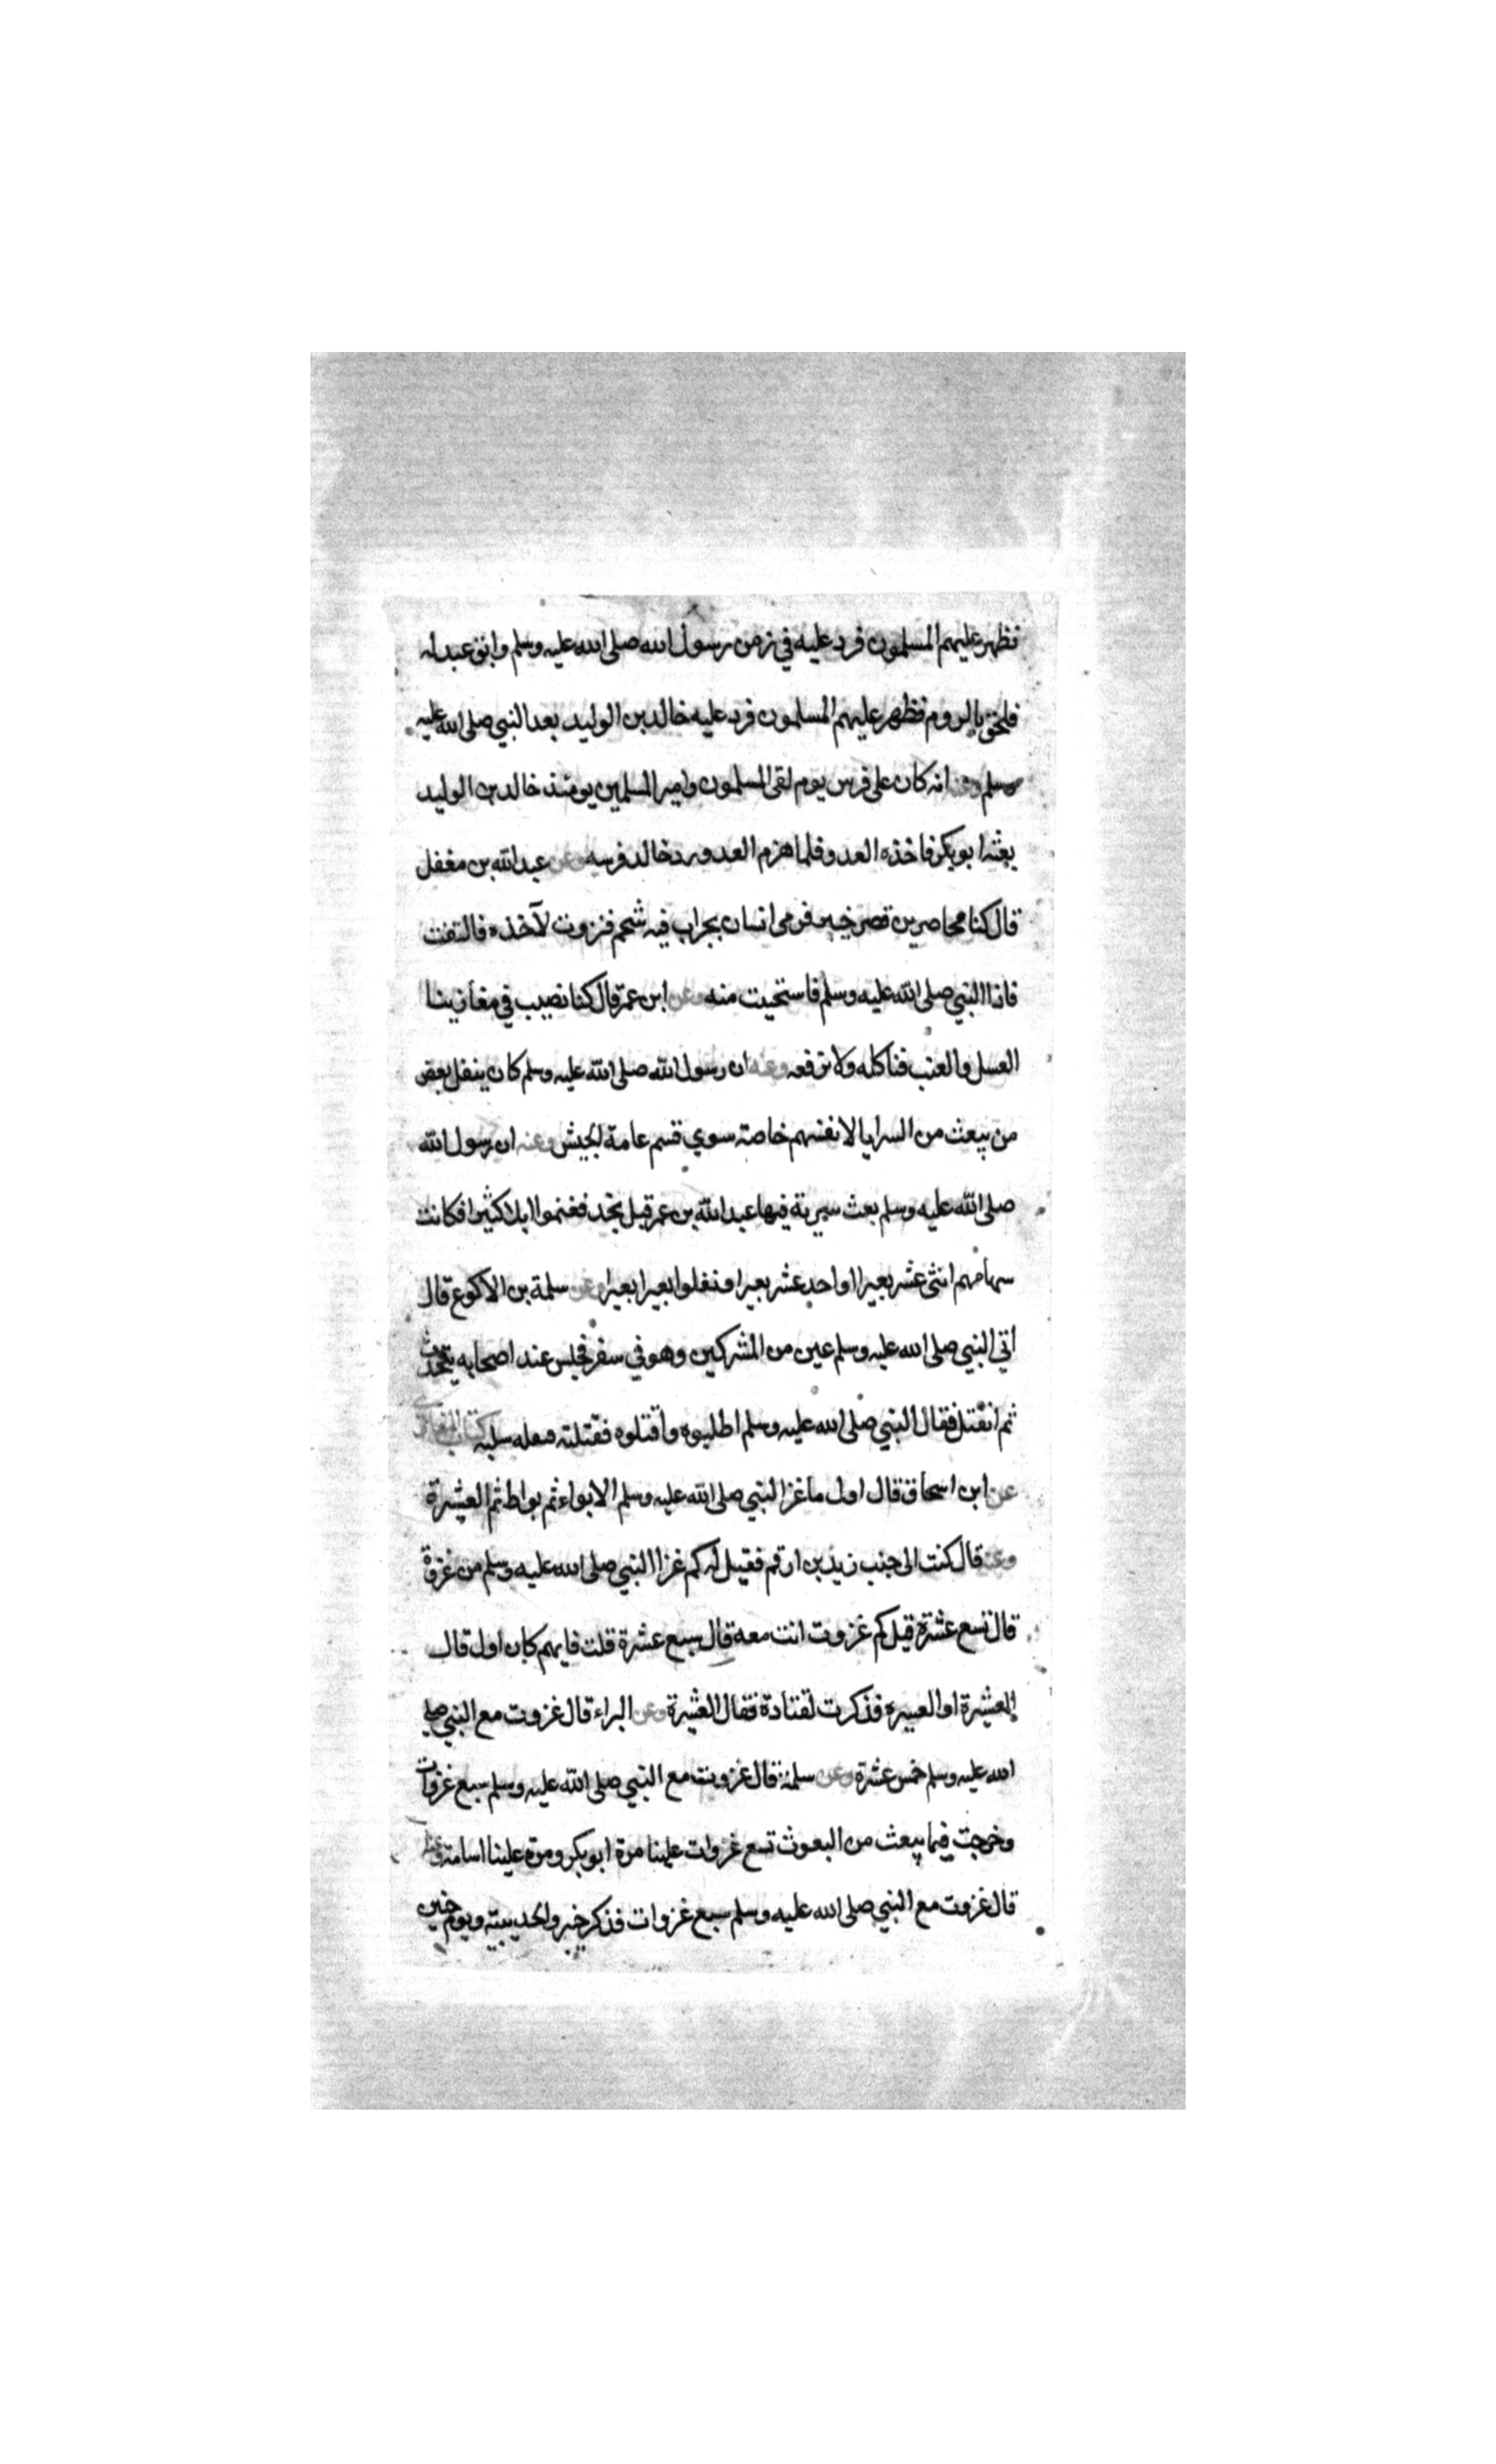 فظهر عليهم المسلمون فرد عليه في زمن رسول الله صلى الله عليه وسلم وابق عبد له
فلحق بالروم فظهر عليهم المسلمون فرد عليه خالد بن الوليد بعد النبي صلى الله عليه
وسلم وعنه انه كان على فرس يوم لقى المسلمون وامير المسلمين يومئذ خالد بن الوليد
بعثه ابو بكر فاخذه العدو فلما هزم العدو رد خالد فرسه وعن عبد الله بن مغفل
قال كنا محاصرين قصر خيبر فرمى انسان بجراب فيه شحم فنزوت لآخذه فالتفت
فاذا النبي صلى الله عليه وسلم فاستحيت منه وعن ابن عمر قال كنا نصيب في مغازينا
العسل والعنب فناكله ولا نرفعه وعنه ان رسول الله صلى الله عليه وسلم كان ينفل بعض
من يبعث من السرايا لانفسهم خاصة سوي قسم عامة الجيش وعنه ان رسول الله
صلى الله عليه وسلم بعث سرية فيها عبد الله بن عمر قبل نجد فغنموا ابلا كثيرا فكانت
سهامهم اثنى عشر بعيرا او احد عشر بعيرا ونفلوا بعيرا بعيرا وعن سلمة بن الاكوع قال
اتي النبي صلى الله عليه وسلم عين من المشركين وهو في سفر فجلس عند اصحابه يتحدث
ثم انفتل فقال النبي صلى الله عليه وسلم اطلبوه واقتلوه فقتلته فنفله سلبه كتاب المغازى
عن ابن اسحاق قال اول ما غزا النبي صلى الله عليه وسلم الابواء ثم بواط ثم العشيرة
وعنه قال كنت الى جنب زيد بن ارقم فقيل له كم غزا النبي صلى الله عليه وسلم من غزوة
قال تسع عشرة قيل كم غزوت انت معه قال سبع عشرة قلت فايهم كان اول قال
العشيرة او العسيرة فذكرت لقتادة فقال العشيرة وعن البراء قال غزوت مع النبي صلى
الله عليه وسلم خمس عشرة وعن سلمة قال غزوت مع النبي صلى الله عليه وسلم سبع غزوات
وخرجت فيما يبعث من البعوث تسع غزوات علينا مرة ابو بكر ومرة علينا اسامة وعنه
قال غزوت مع النبي صلى الله عليه وسلم سبع غزوات فذكر خيبر والحديبية ويوم حنين